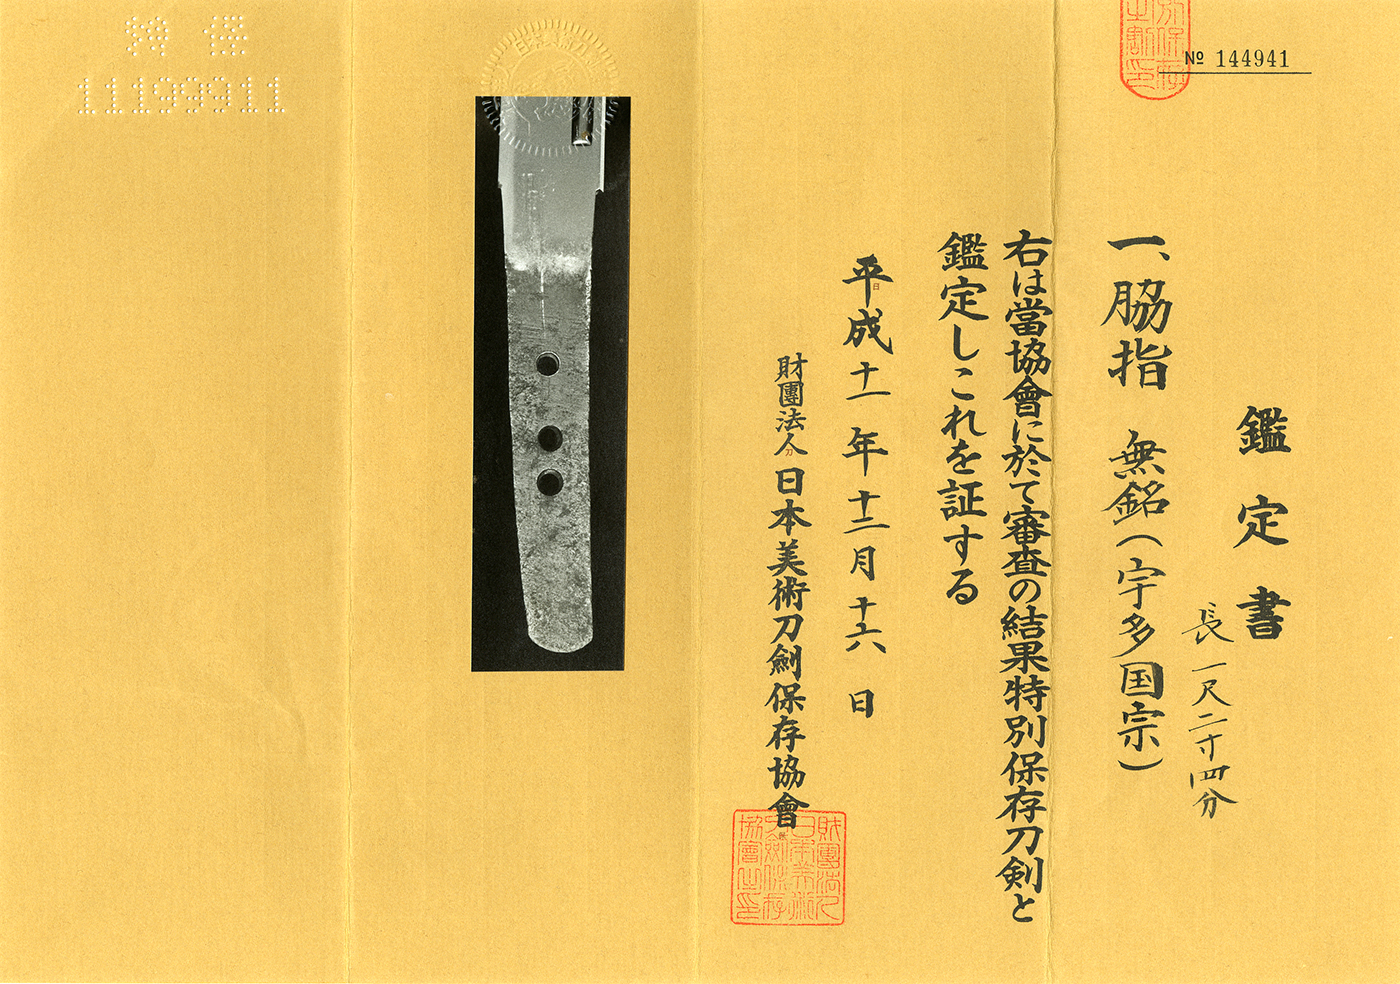 鑑定書
一、脇指 無銘(宇多国宗)
長一尺二寸四分
右は當協會に於て審査の結果特別保存刀剣と
鑑定しこれを証する
平成十一年十二月十六日
財團法人日本美術刀劍保存協會
№ 144941
特保
11199911
財團法人
日本美術
刀劍保存
協會之印